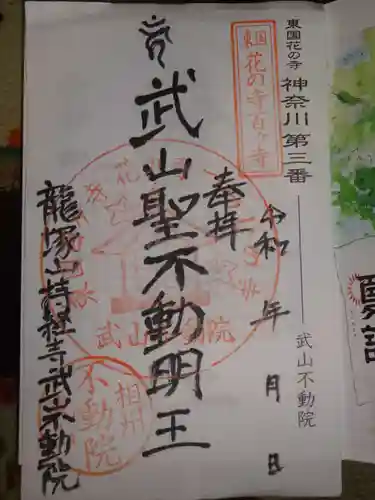 東国花の寺 神奈川第三番
武山不動院
東国花の寺百ヶ寺
奉拝
令和 年 月 日
武山聖不動明王
龍塚山持経寺武山不動院
武山不動院
相州
不動院